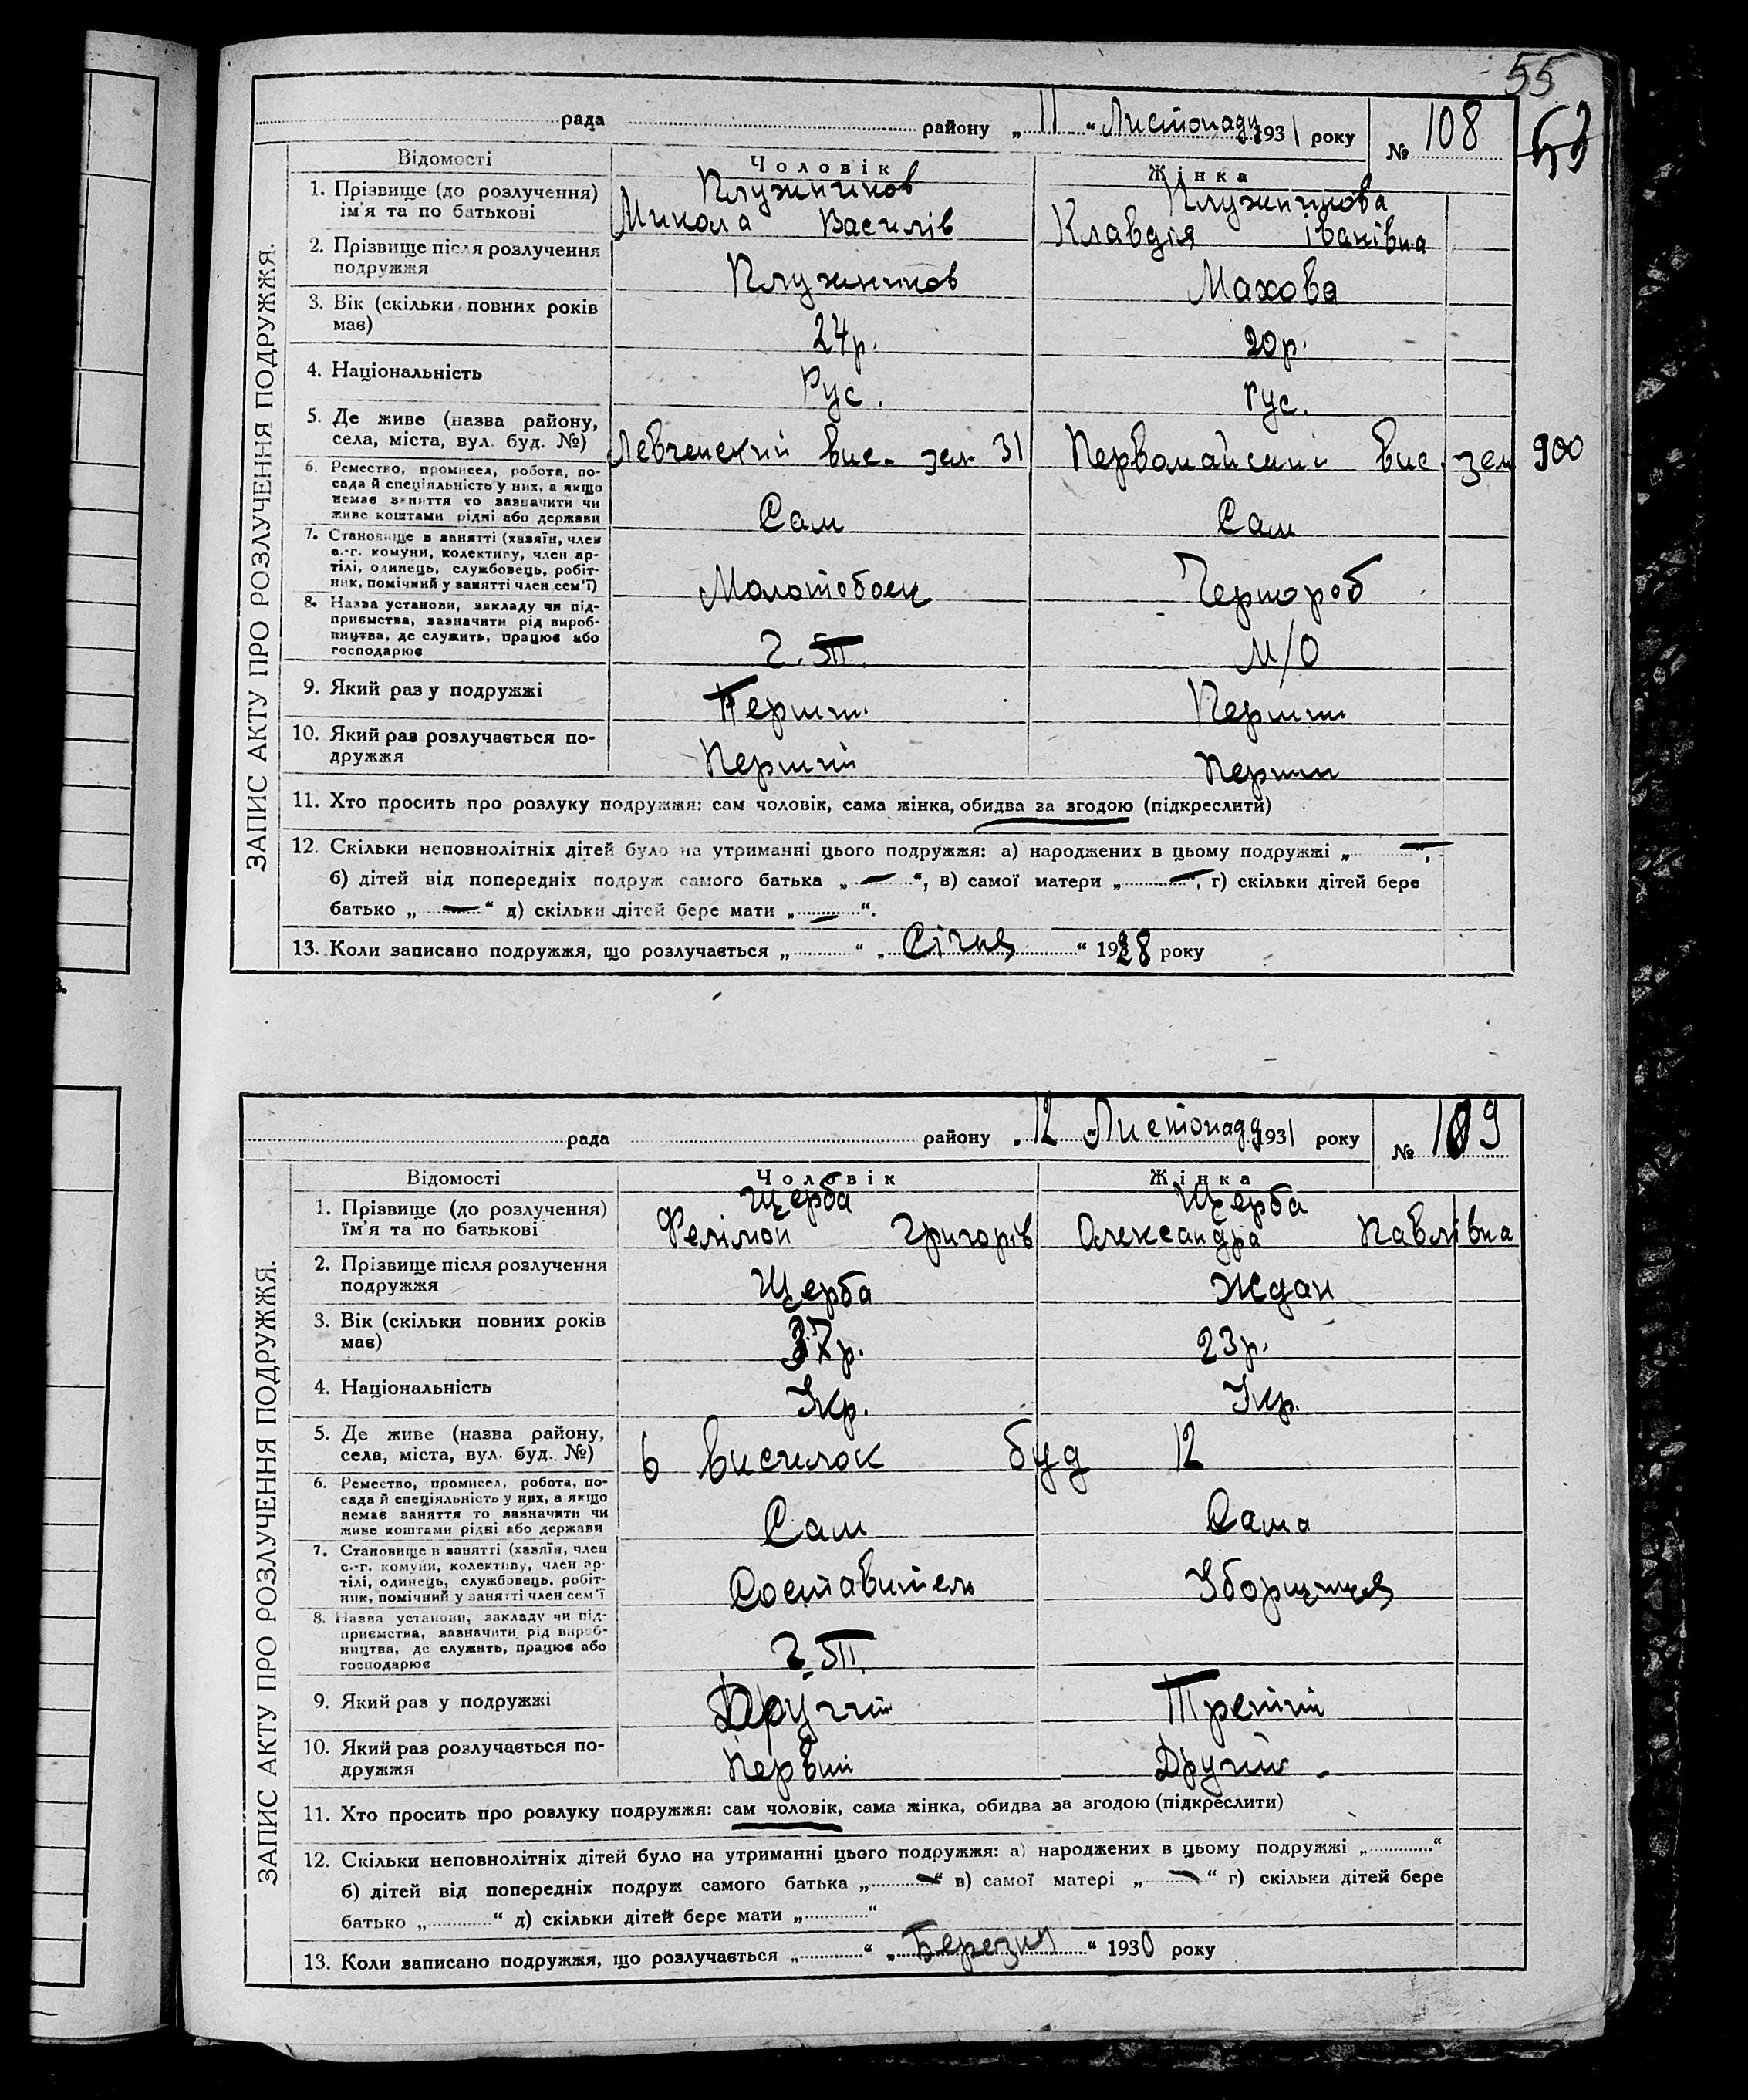 55
53
рада району „ 11 “ Листопаду 1931 року № 108
Відомості Чоловік Жінка
1. Прізвище (до розлучення) Плужников Плужникова
ім'я та по батькові Микола Василів Клавдія іванівна
2. Прізвище після розлучення
подружжя Плужников Махова
3. Вік (скільки повних років
має) 24р. 20р.
4. Національність Рус. Рус.
5. Де живе (назва району,
села, міста, вул. буд. №) Левченский вис. зем 31 Первомайский вис. зем 900
6. Ремество, промисел, робота, по-
сада й спеціяльність у них, а якщо
немає заняття то зазначити чи
живе коштами рідні або держави Сам Сам
7. Становище в занятті (хазяїн, член
с.-г. комуни, колективу, член ар-
тілі, одинець, службовець, робіт-
ник, помічний у занятті член сем'ї) Молотобоец Чернороб
8. Назва установи, закладу чи під-
приємства, зазначити рід вироб-
ництва, де служить, працює або
господарює М/О
9. Який раз у подружжі Перши. Перши
10. Який раз розлучається по-
дружжя Перший Перши
11. Хто просить про розлуку подружжя: сам чоловік, сама жінка, обидва за згодою (підкреслити)
12. Скільки неповнолітніх дітей було на утриманні цього подружжя: а) народжених в цьому подружжі „ — “,
б) дітей від попередніх подруж самого батька „ — “, в) самої матери „ — “, г) скільки дітей бере
батько „ — “ д) скільки дітей бере мати „ — “.
13. Коли записано подружжя, що розлучається „ “ „ Січня “ 1928 року
ЗАПИС АКТУ ПРО РОЗЛУЧЕННЯ ПОДРУЖЖЯ.
рада району „ 12 “ Листопаду 1931 року № 109
Відомості Чоловік Жінка
1. Прізвище (до розлучення) Щерба Щерба
їм'я та по батькові Фелімон Григорів Олександра Павлівна
2. Прізвище після розлучення
подружжя Щерба Ждан
3. Вік (скільки повних років
має) 37р. 23р.
4. Національність Укр. Укр.
5. Де живе (назва району,
села, міста, вул. буд. №) 6 виселок буд 12
6. Ремество, промисел, робота, по-
сада й спеціяльність у них, а якщо
немає заняття то зазначити чи
живе коштами рідні або держави Сам Сама
7. Становище в занятті (хазяїн, член
с.-г. комуни, колективу, член ар-
тілі, одинець, службовець, робіт-
ник, помічний у занятті член сем'ї Составитель Уборщиця
8. Назва установи, закладу чи під-
приємства, зазначити рід вироб-
ництва, де служить, працює або
господарює
9. Який раз у подружжі Другий Третій
10. Який раз розлучається по-
дружжя Первий Другий
11. Хто просить про розлуку подружжя: сам чоловік, сама жінка, обидва за згодою (підкреслити)
12. Скільки неповнолітніх дітей було на утриманні цього подружжя: а) народжених в цьому подружжі „ “
б) дітей від попередніх подруж самого батька „ — “ в) самої матері „ — “ г) скільки дітей бере
батько „ “ д) скільки дітей бере мати „ “
13. Коли записано подружжя, що розлучається „ “ „ Березня “ 1930 року
ЗАПИС АКТУ ПРО РОЗЛУЧЕННЯ ПОДРУЖЖЯ.